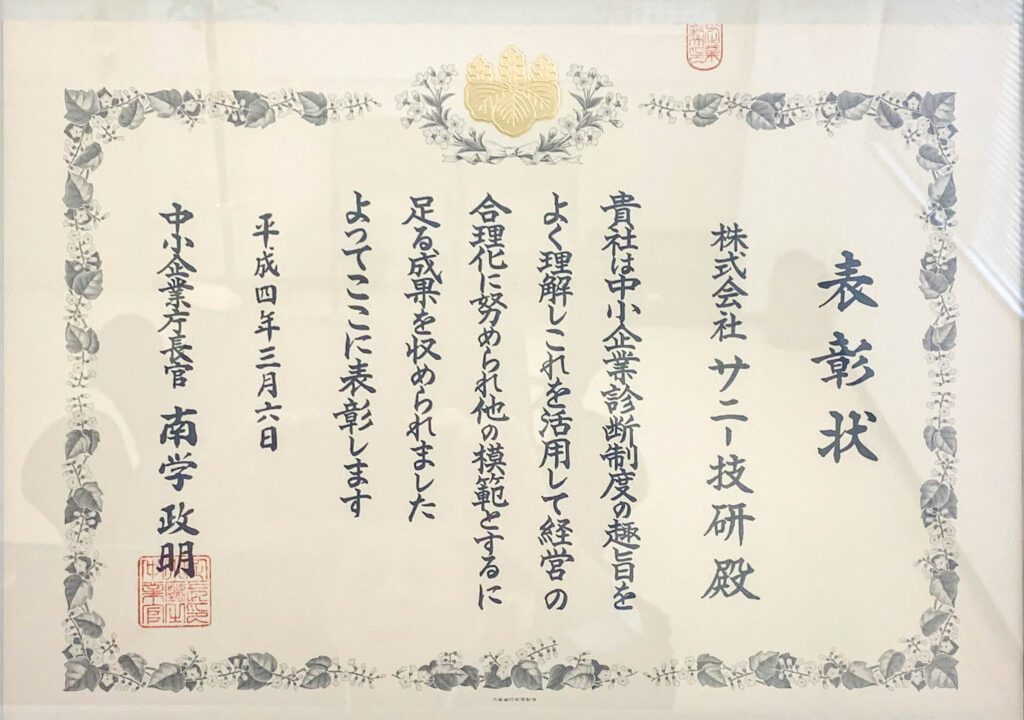 表彰状
株式会社 サニー技研 殿
貴社は中小企業診断制度の趣旨を
よく理解しこれを活用して経営の
合理化に努められ他の模範とするに
足る成果を収められました
よってここに表彰します
平成四年三月六日
中小企業庁長官 南学政明